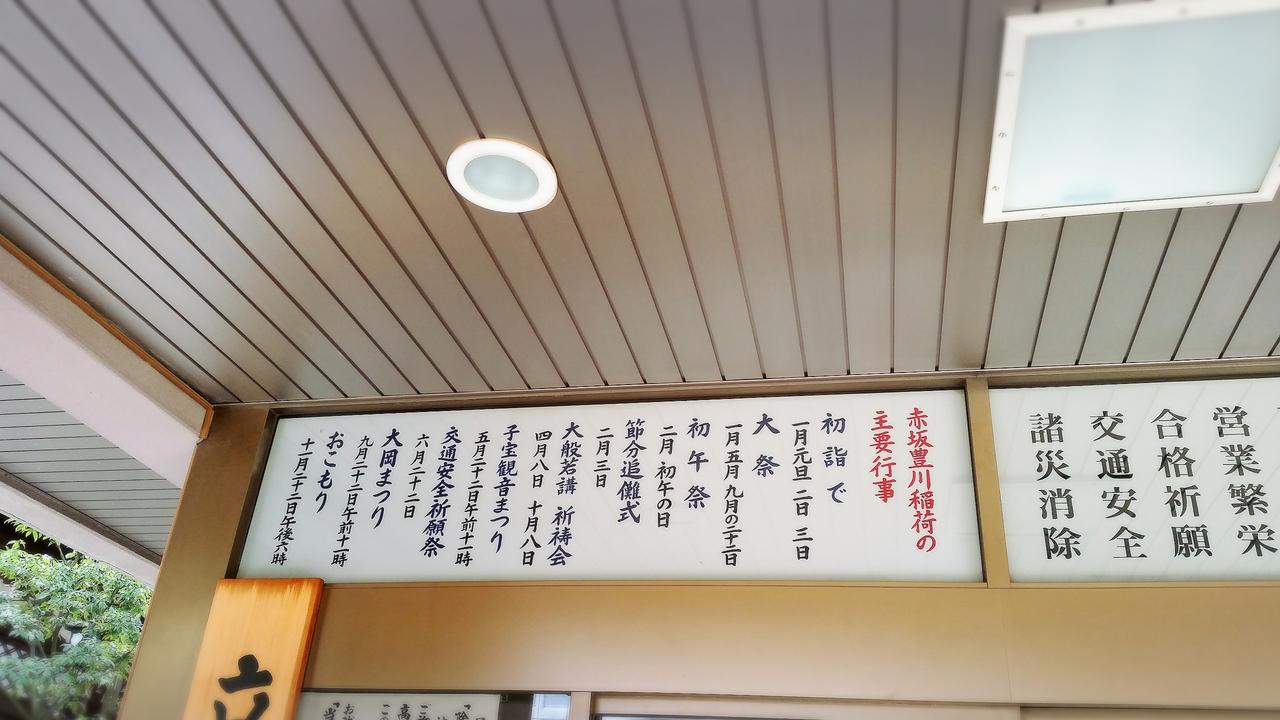 営業繁栄
合格祈願
交通安全
諸災消除
赤坂豊川稲荷の
主要行事
初詣で
一月元旦 二日 三日
大祭
一月五月九月の二十二日
初午祭
二月 初午の日
節分追儺式
二月三日
大般若講 祈祷会
四月八日 十月八日
子宝観音まつり
五月二十二日午前十一時
交通安全祈願祭
六月二十二日
大岡まつり
九月二十二日午前十一時
おこもり
十一月二十二日午後六時